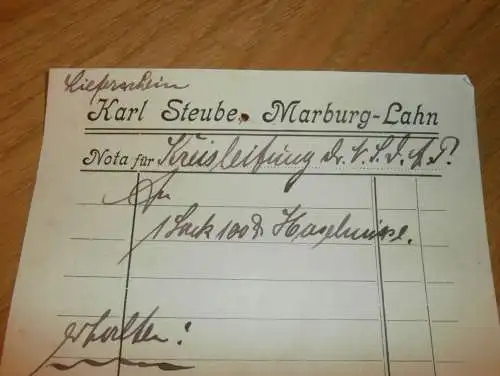 Lieferschein
Karl Steube, Marburg-Lahn
Nota für Kreisleitung d. N.S.D.A.P.
1 Sack 100 Haselnüsse.
erhalten: